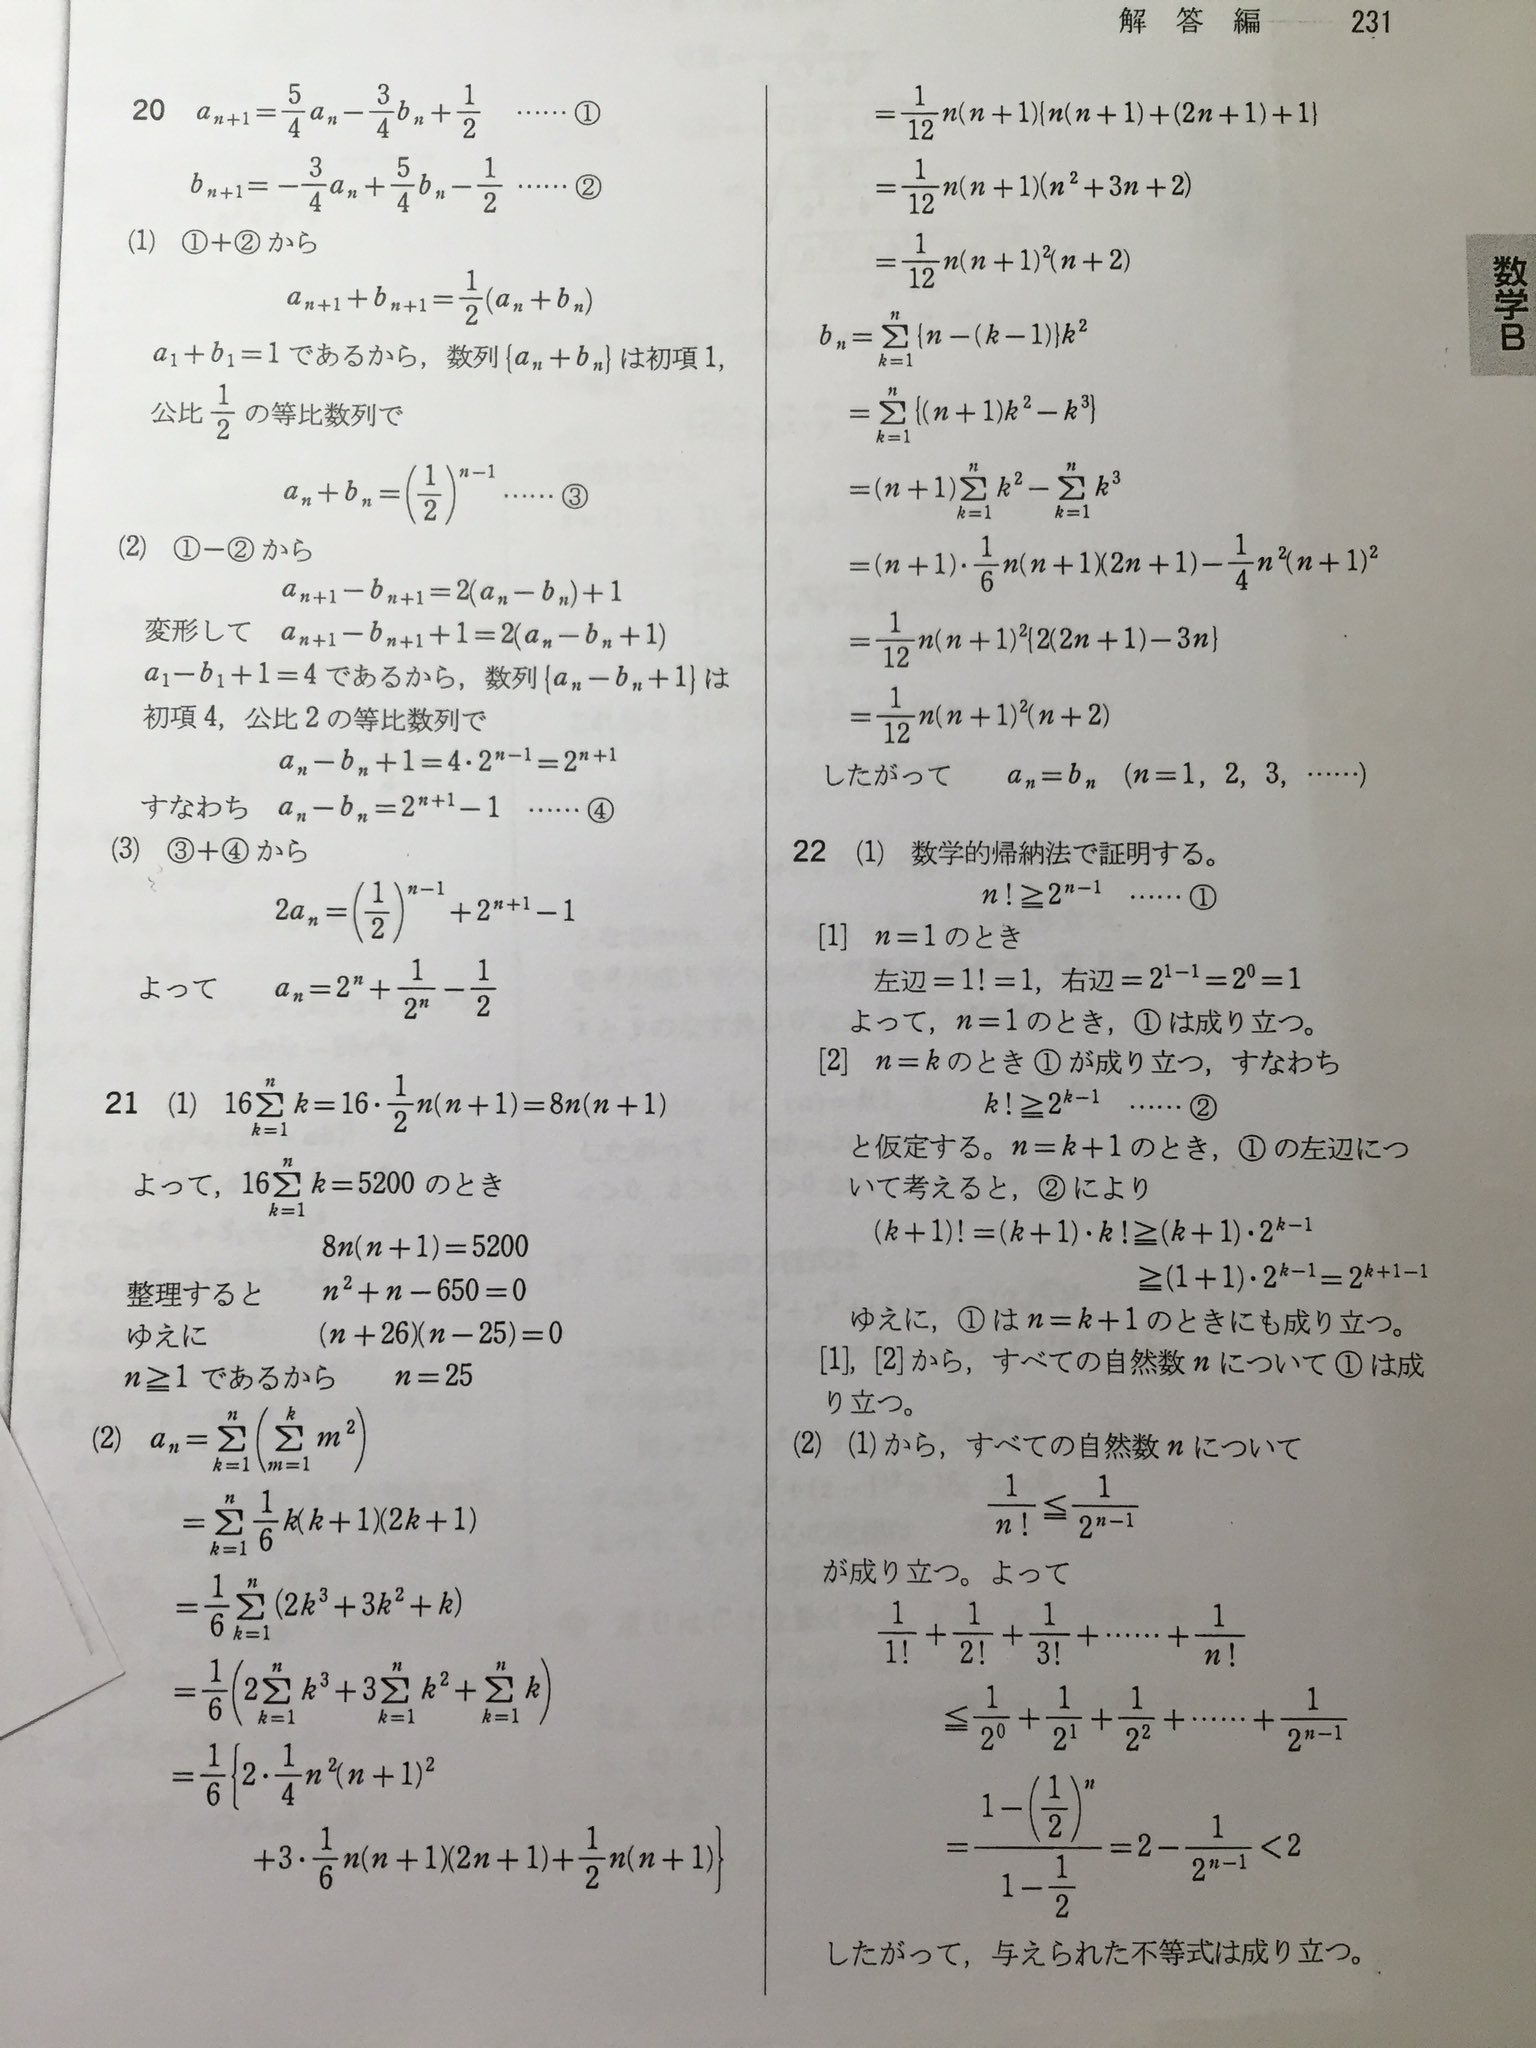 解答編 231
20 a_{n+1}=\frac{5}{4}a_n-\frac{3}{4}b_n+\frac{1}{2} ……①
b_{n+1}=-\frac{3}{4}a_n+\frac{5}{4}b_n-\frac{1}{2} ……②
(1) ①+②から
a_{n+1}+b_{n+1}=\frac{1}{2}(a_n+b_n)
a_1+b_1=1であるから，数列{a_n+b_n}は初項1，
公比\frac{1}{2}の等比数列で
a_n+b_n=(\frac{1}{2})^{n-1} ……③
(2) ①-②から
a_{n+1}-b_{n+1}=2(a_n-b_n)+1
変形して a_{n+1}-b_{n+1}+1=2(a_n-b_n+1)
a_1-b_1+1=4であるから，数列{a_n-b_n+1}は
初項4，公比2の等比数列で
a_n-b_n+1=4・2^{n-1}=2^{n+1}
すなわち a_n-b_n=2^{n+1}-1 ……④
(3) ③+④から
2a_n=(\frac{1}{2})^{n-1}+2^{n+1}-1
よって a_n=2^n+\frac{1}{2^n}-\frac{1}{2}
21 (1) 16\sum_{k=1}^{n}k=16・\frac{1}{2}n(n+1)=8n(n+1)
よって，16\sum_{k=1}^{n}k=5200のとき
8n(n+1)=5200
整理すると n^2+n-650=0
ゆえに (n+26)(n-25)=0
n≧1であるから n=25
(2) a_n=\sum_{k=1}^{n}(\sum_{m=1}^{k}m^2)
=\sum_{k=1}^{n}\frac{1}{6}k(k+1)(2k+1)
=\frac{1}{6}\sum_{k=1}^{n}(2k^3+3k^2+k)
=\frac{1}{6}(2\sum_{k=1}^{n}k^3+3\sum_{k=1}^{n}k^2+\sum_{k=1}^{n}k)
=\frac{1}{6}{2・\frac{1}{4}n^2(n+1)^2
+3・\frac{1}{6}n(n+1)(2n+1)+\frac{1}{2}n(n+1)}
=\frac{1}{12}n(n+1){n(n+1)+(2n+1)+1}
=\frac{1}{12}n(n+1)(n^2+3n+2)
=\frac{1}{12}n(n+1)^2(n+2)
b_n=\sum_{k=1}^{n}{n-(k-1)}k^2
=\sum_{k=1}^{n}{(n+1)k^2-k^3}
=(n+1)\sum_{k=1}^{n}k^2-\sum_{k=1}^{n}k^3
=(n+1)・\frac{1}{6}n(n+1)(2n+1)-\frac{1}{4}n^2(n+1)^2
=\frac{1}{12}n(n+1)^2{2(2n+1)-3n}
=\frac{1}{12}n(n+1)^2(n+2)
したがって a_n=b_n (n=1, 2, 3, ……)
22 (1) 数学的帰納法で証明する。
n!≧2^{n-1} ……①
[1] n=1のとき
左辺=1!=1，右辺=2^{1-1}=2^0=1
よって，n=1のとき，①は成り立つ。
[2] n=kのとき①が成り立つ，すなわち
k!≧2^{k-1} ……②
と仮定する。n=k+1のとき，①の左辺につ
いて考えると，②により
(k+1)!=(k+1)・k!≧(k+1)・2^{k-1}
≧(1+1)・2^{k-1}=2^{k+1-1}
ゆえに，①はn=k+1のときにも成り立つ。
[1]，[2]から，すべての自然数nについて①は成
り立つ。
(2) (1)から，すべての自然数nについて
\frac{1}{n!}≦\frac{1}{2^{n-1}}
が成り立つ。よって
\frac{1}{1!}+\frac{1}{2!}+\frac{1}{3!}+……+\frac{1}{n!}
≦\frac{1}{2^0}+\frac{1}{2^1}+\frac{1}{2^2}+……+\frac{1}{2^{n-1}}
=\frac{1-(\frac{1}{2})^n}{1-\frac{1}{2}}=2-\frac{1}{2^{n-1}}<2
したがって，与えられた不等式は成り立つ。
数学B